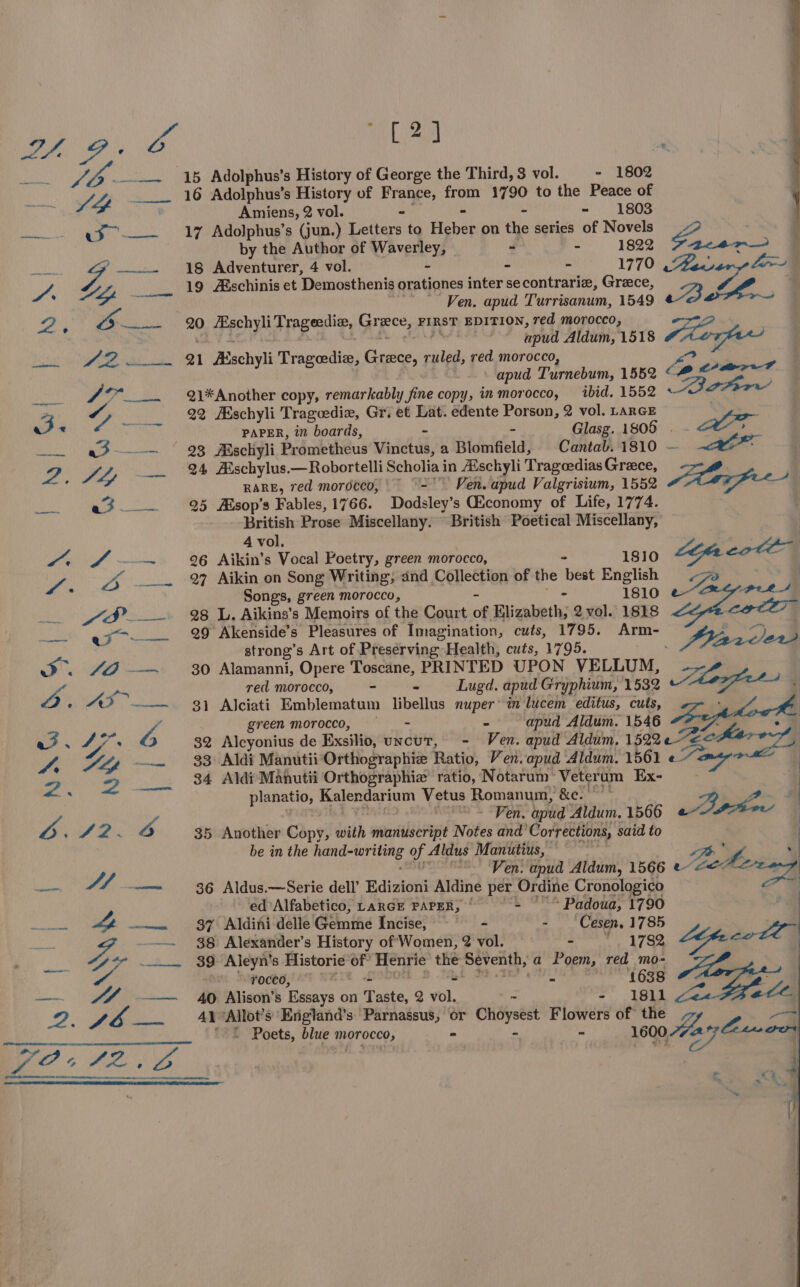 [ 2 ]
21. 9. 6
16 — 15 Adolphus's History of George the Third, 3 vol. - 1802
14 — 16 Adolphus's History of France, from 1790 to the Peace of
Amiens, 2 vol. - - - - 1803
5 — 17 Adolphus's (jun.) Letters to Heber on the series of Novels
by the Author of Waverley, - - 1822
9 — 18 Adventurer, 4 vol. - - - 1770
1. 14 — 19 Æschinis et Demosthenis orationes inter se contrariæ, Græce,
Ven. apud Turrisanum, 1549
2. 6 — 20 Æschyli Tragœdiæ, Græce, FIRST EDITION, red morocco,
apud Aldum, 1518
12 — 21 Æschyli Tragœdiæ, Græce, ruled, red morocco,
apud Turnebum, 1552
17 — 21*Another copy, remarkably fine copy, in morocco, ibid. 1552
3. 4 — 22 Æschyli Tragœdiæ, Gr. et Lat. edente Porson, 2 vol. LARGE
PAPER, in boards, - - Glasg. 1806
3 — 23 Æschyli Prometheus Vinctus, a Blomfield, Cantab. 1810
2. 14 — 24 Æschylus.—Robortelli Scholia in Æschyli Tragœdias Græce,
RARE, red morocco, - Ven. apud Valgrisium, 1552
3 — 25 Æsop's Fables, 1766. Dodsley's Œconomy of Life, 1774.
British Prose Miscellany. British Poetical Miscellany,
4 vol.
1. 1 — 26 Aikin's Vocal Poetry, green morocco, - 1810
1. 6 — 27 Aikin on Song Writing, and Collection of the best English
Songs, green morocco, - - 1810
18 — 28 L. Aikins's Memoirs of the Court of Elizabeth, 2 vol. 1818
5 — 29 Akenside's Pleasures of Imagination, cuts, 1795. Arm-
strong's Art of Preserving Health, cuts, 1795.
5. 10 — 30 Alamanni, Opere Toscane, PRINTED UPON VELLUM,
red morocco, - - Lugd. apud Gryphium, 1532
6. 15 — 31 Alciati Emblematum libellus nuper in lucem editus, cuts,
green morocco, - - apud Aldum. 1546
3. 17. 6 32 Alcyonius de Exsilio, UNCUT, - Ven. apud Aldum. 1522
1. 14 — 33 Aldi Manutii Orthographiæ Ratio, Ven. apud Aldum. 1561
2. 2 — 34 Aldi Manutii Orthographiæ ratio, Notarum Veterum Ex-
planatio, Kalendarium Vetus Romanum, &c.
- Ven. apud Aldum. 1566
6. 12. 6 35 Another Copy, with manuscript Notes and Corrections, said to
be in the hand-writing of Aldus Manutius,
Ven. apud Aldum, 1566
11 — 36 Aldus.—Serie dell' Edizioni Aldine per Ordine Cronologico
ed Alfabetico, LARGE PAPER, - Padoua, 1790
4 — 37 Aldini delle Gemme Incise, - - Cesen. 1785
9 — 38 Alexander's History of Women, 2 vol. - 1782
39 Aleyn's Historie of Henrie the Seventh, a Poem, red mo-
rocco, - - - 1638
11 — 40 Alison's Essays on Taste, 2 vol. - - 1811
2. 16 — 41 Allot's England's Parnassus, or Choysest Flowers of the
Poets, blue morocco, - - - 1600
70. 12. 6